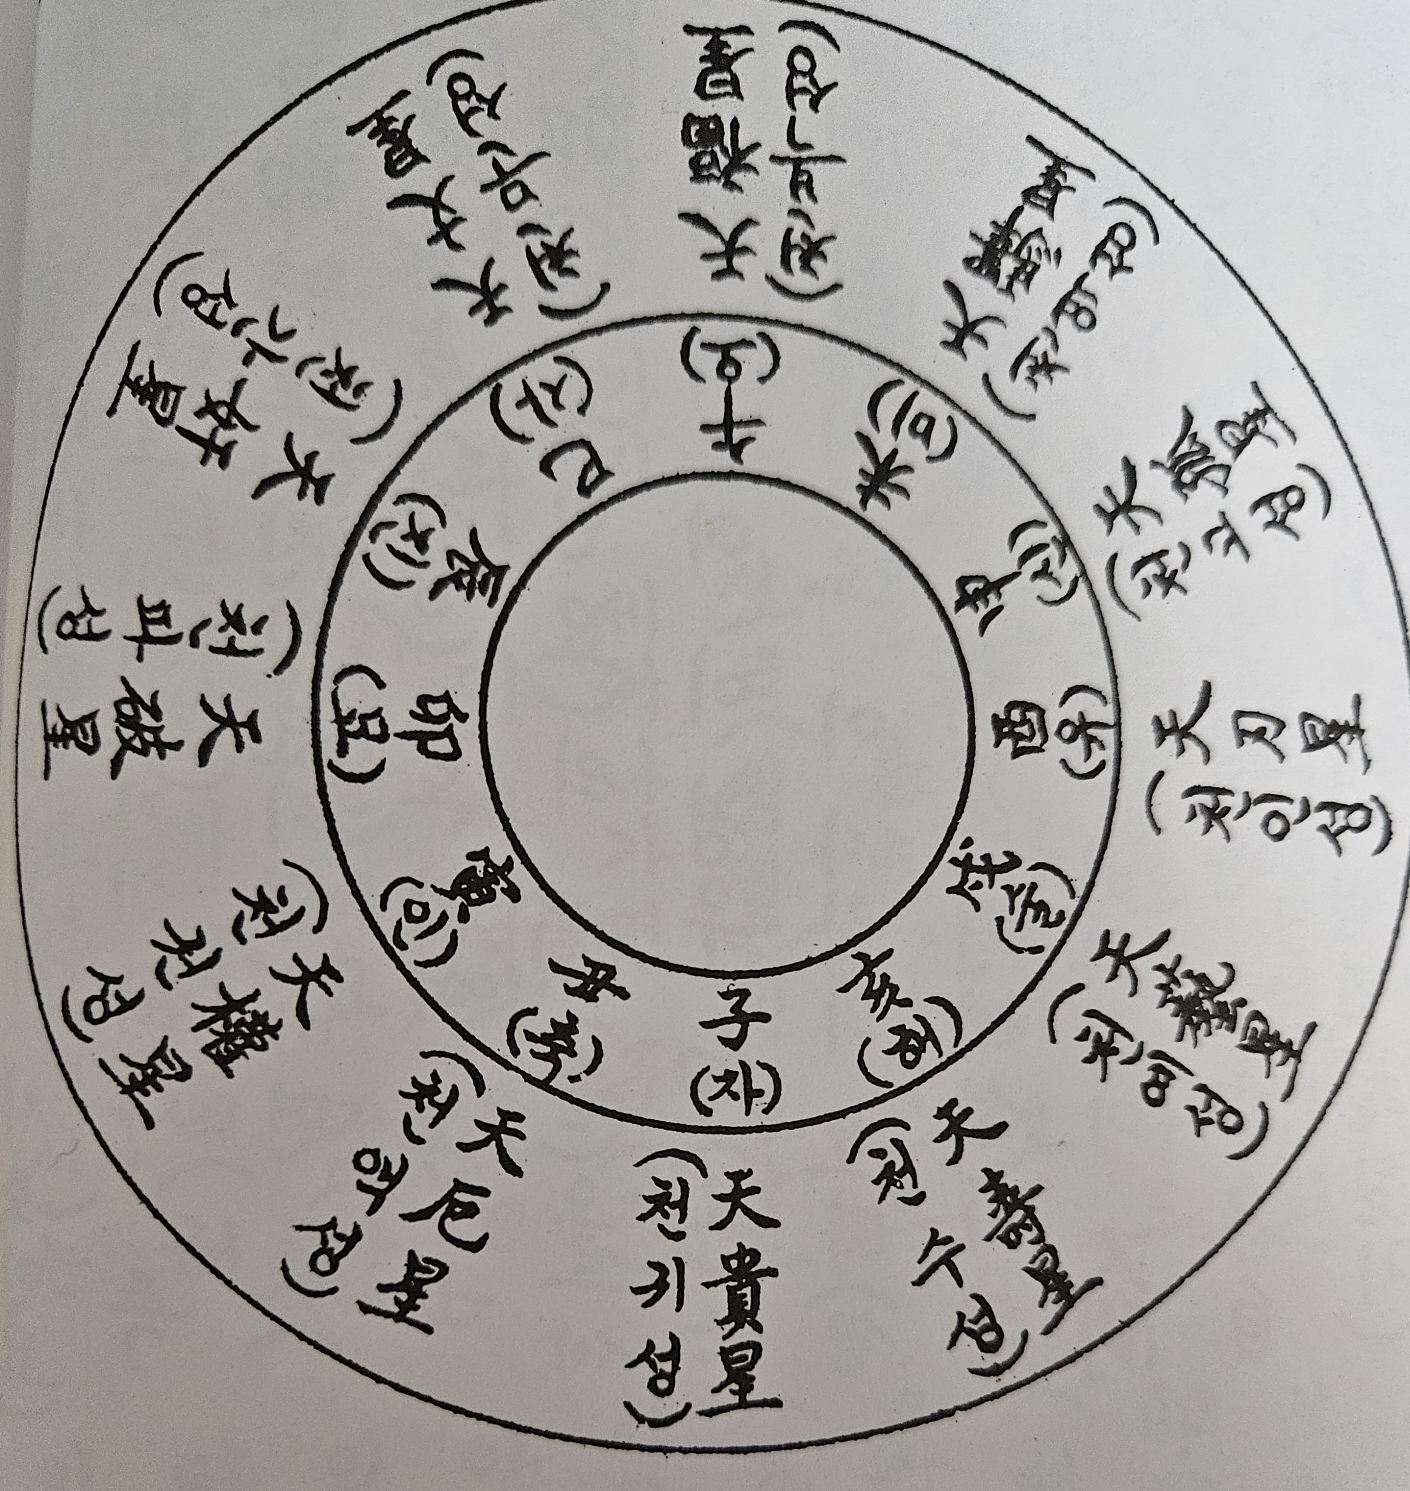 子
(자)
丑
(축)
寅
(인)
卯
(묘)
辰
(진)
巳
(사)
午
(오)
未
(미)
申
(신)
酉
(유)
戌
(술)
亥
(해)
天貴星
(천귀성)
天厄星
(천액성)
天權星
(천권성)
天破星
(천파성)
天奸星
(천간성)
天文星
(천문성)
天福星
(천복성)
天驛星
(천역성)
天孤星
(천고성)
天刃星
(천인성)
天藝星
(천예성)
天壽星
(천수성)